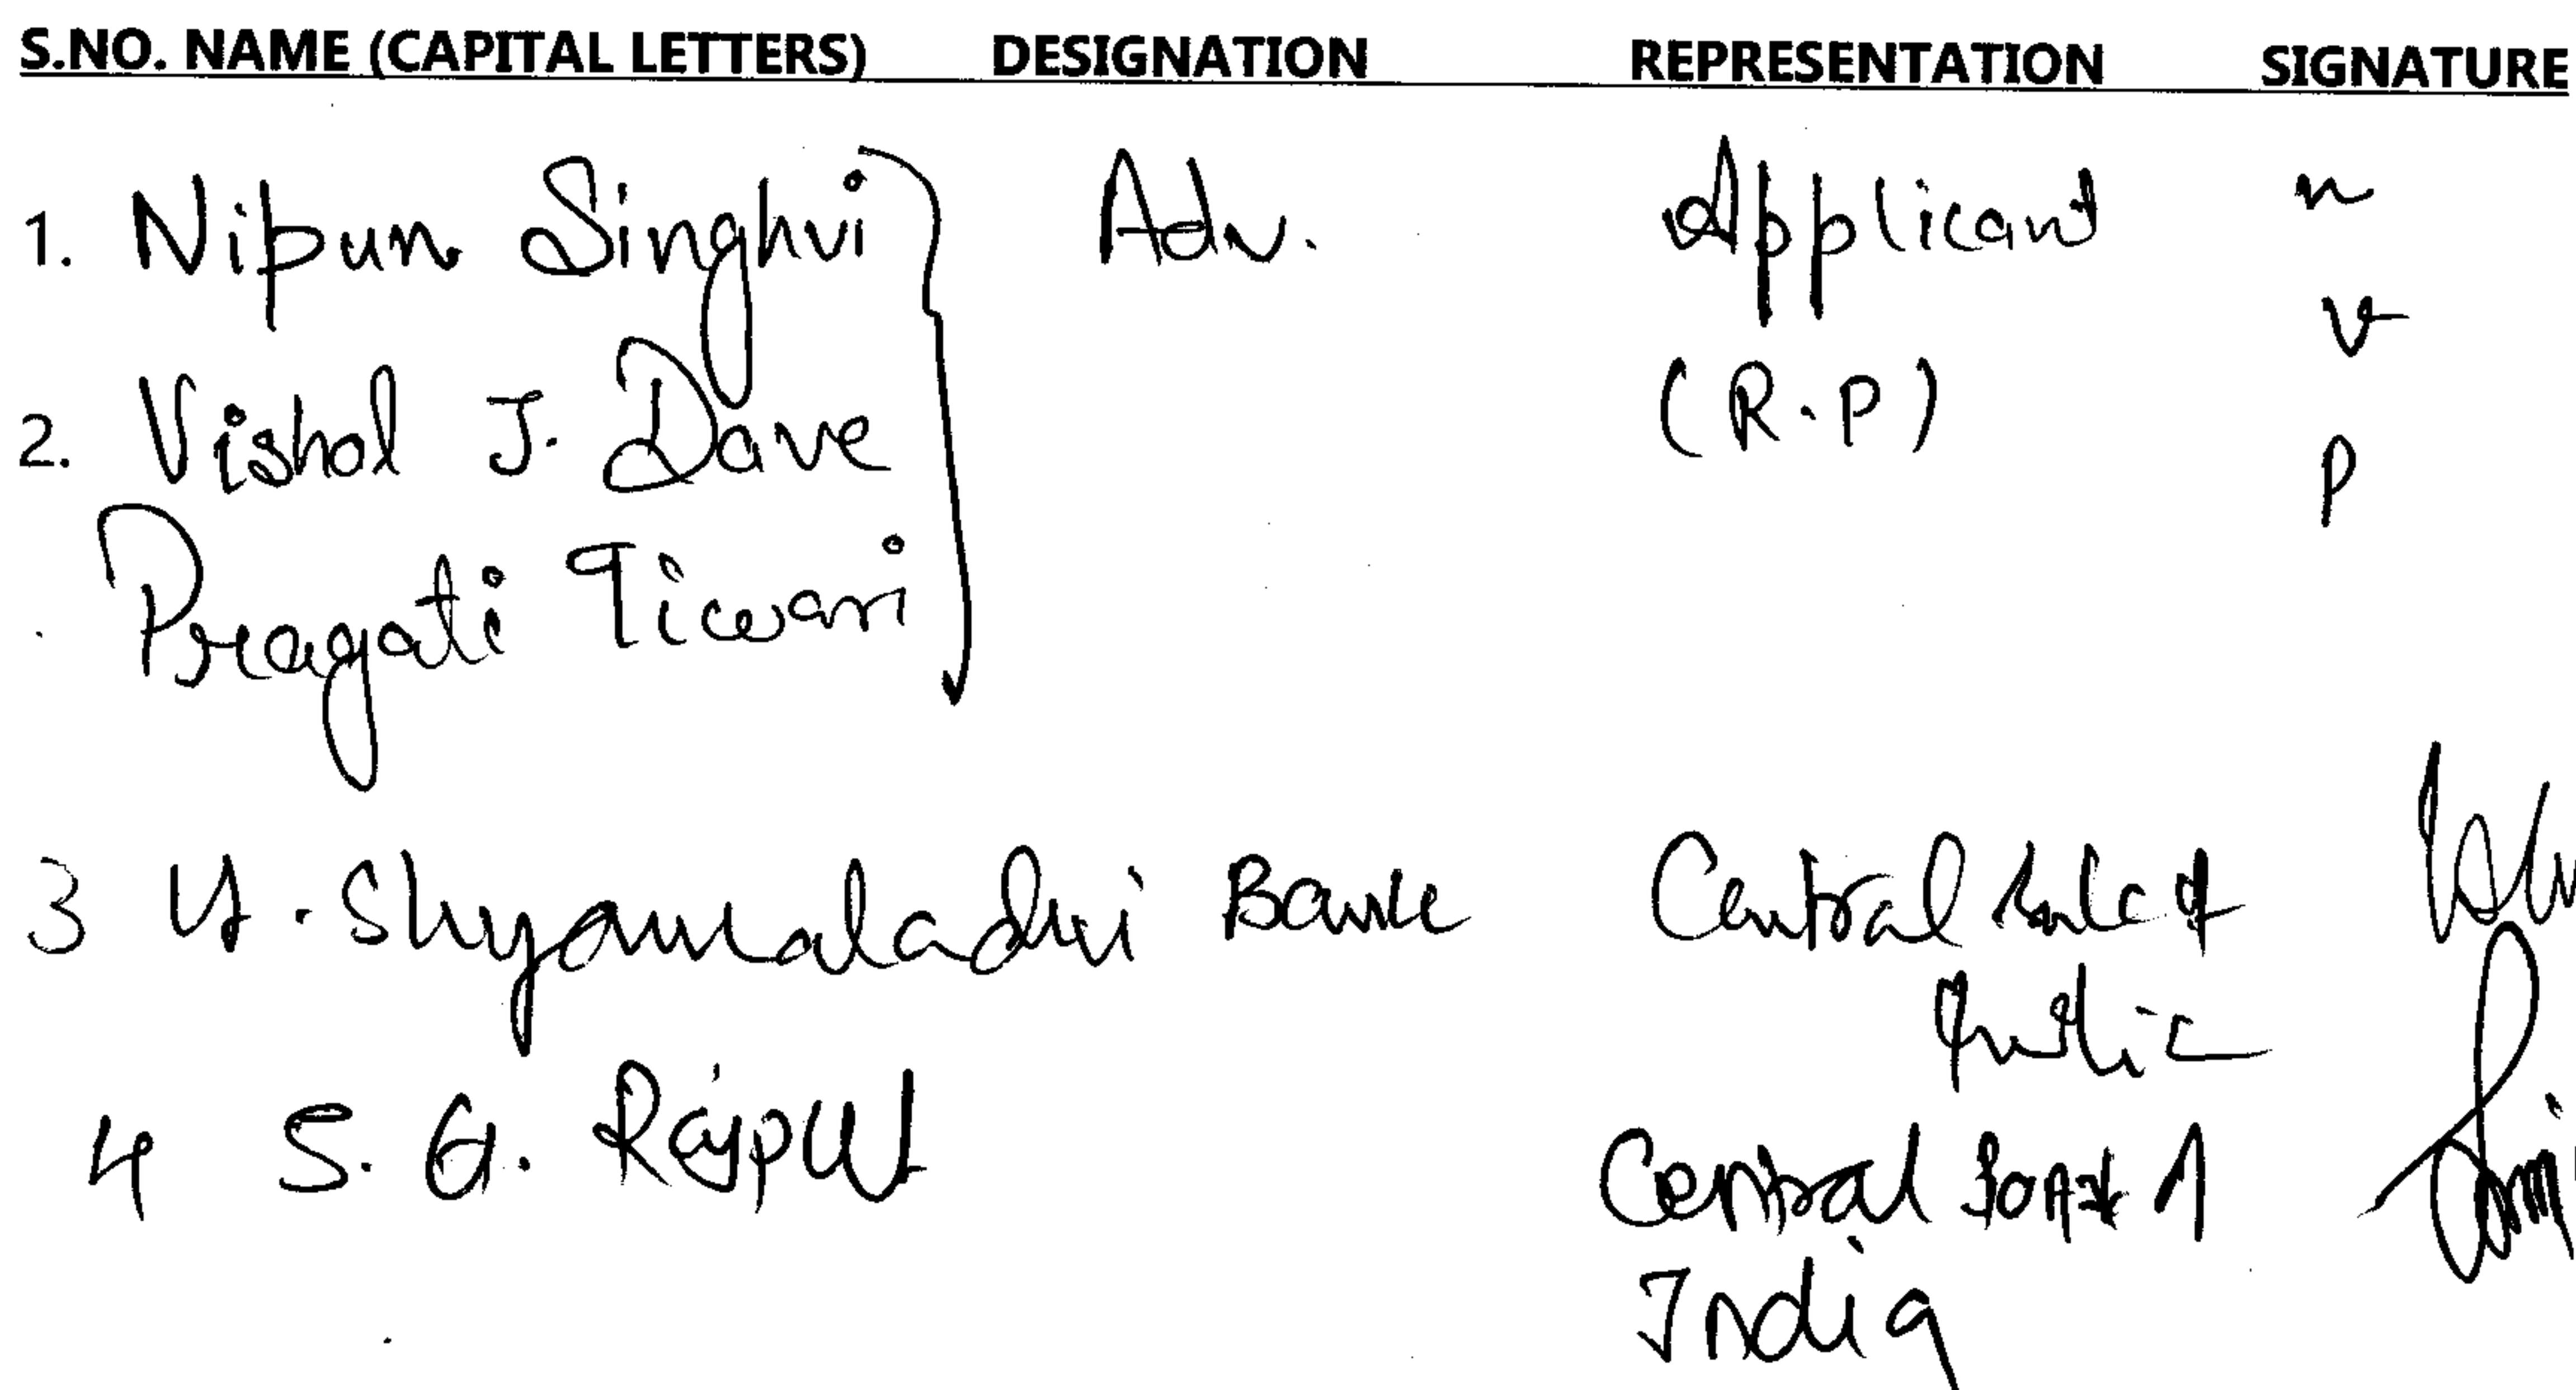 S.NO. NAME (CAPITAL LETTERS) DESIGNATION REPRESENTATION SIGNATURE
1. Nipun Singhvi Adv. Applicant n
v
2. Vishal J. Dave (R.P) P
Pragati Tiwari
3 Shyamaladevi Bank Central Bank of
India
4 S. G. Rajput Central Bank of
India